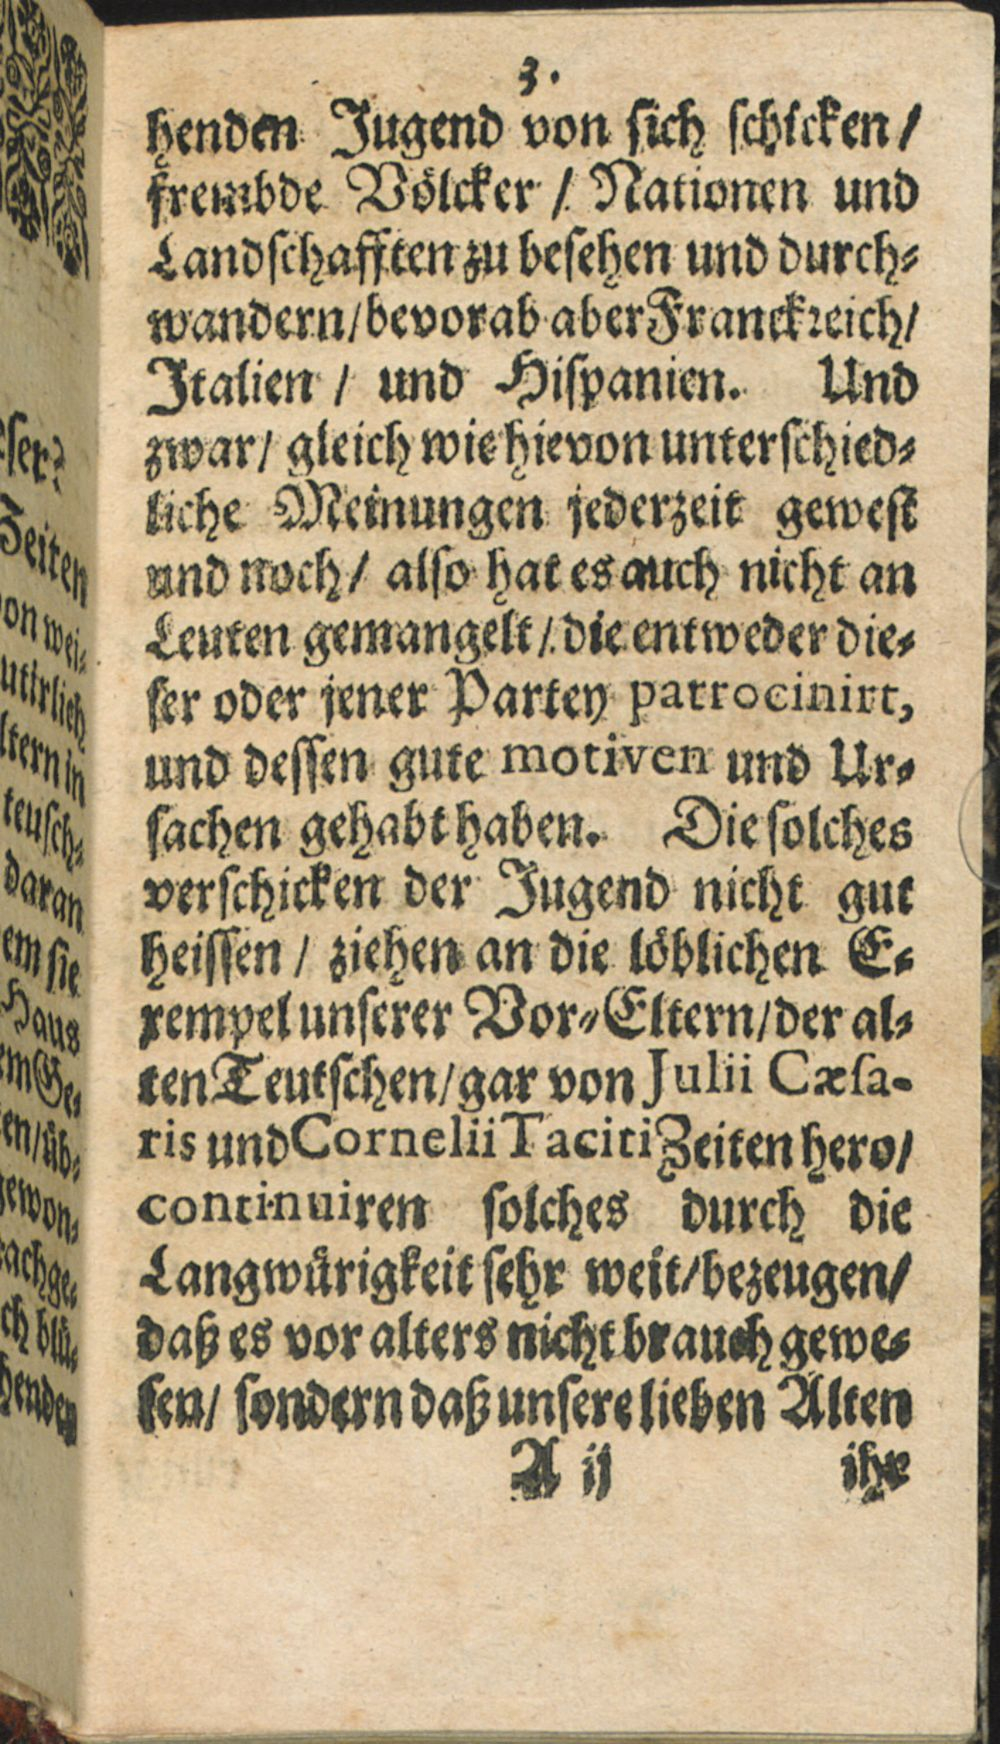 3.
henden Jugend von sich schicken /
frembde Völcker / Nationen und
Landschafften zu besehen und durch-
wandern / bevorab aber Franckreich /
Italien / und Hispanien. Und
zwar / gleich wie hievon unterschied-
liche Meinungen jederzeit gewest
und noch / also hat es auch nicht an
Leuten gemangelt / die entweder die-
ser oder jener Partey patrocinirt,
und dessen gute motiven und Ur-
sachen gehabt haben. Die solches
verschicken der Jugend nicht gut
heissen / ziehen an die löblichen E-
xempel unserer Vor-Eltern / der al-
ten Teutschen / gar von Julii Cæsa-
ris und Cornelii Taciti Zeiten hero /
continuiren solches durch die
Langwürigkeit sehr weit / bezeugen /
daß es vor alters nicht brauch gewe-
sen / sondern daß unsere lieben Alten
A ij ihr
ser?
Zeiten
on wei-
utirlich
ltern in
teusch-
daran
em sie
Haus
em Ge-
en / üb-
gewon-
achge-
ch blü-
henden